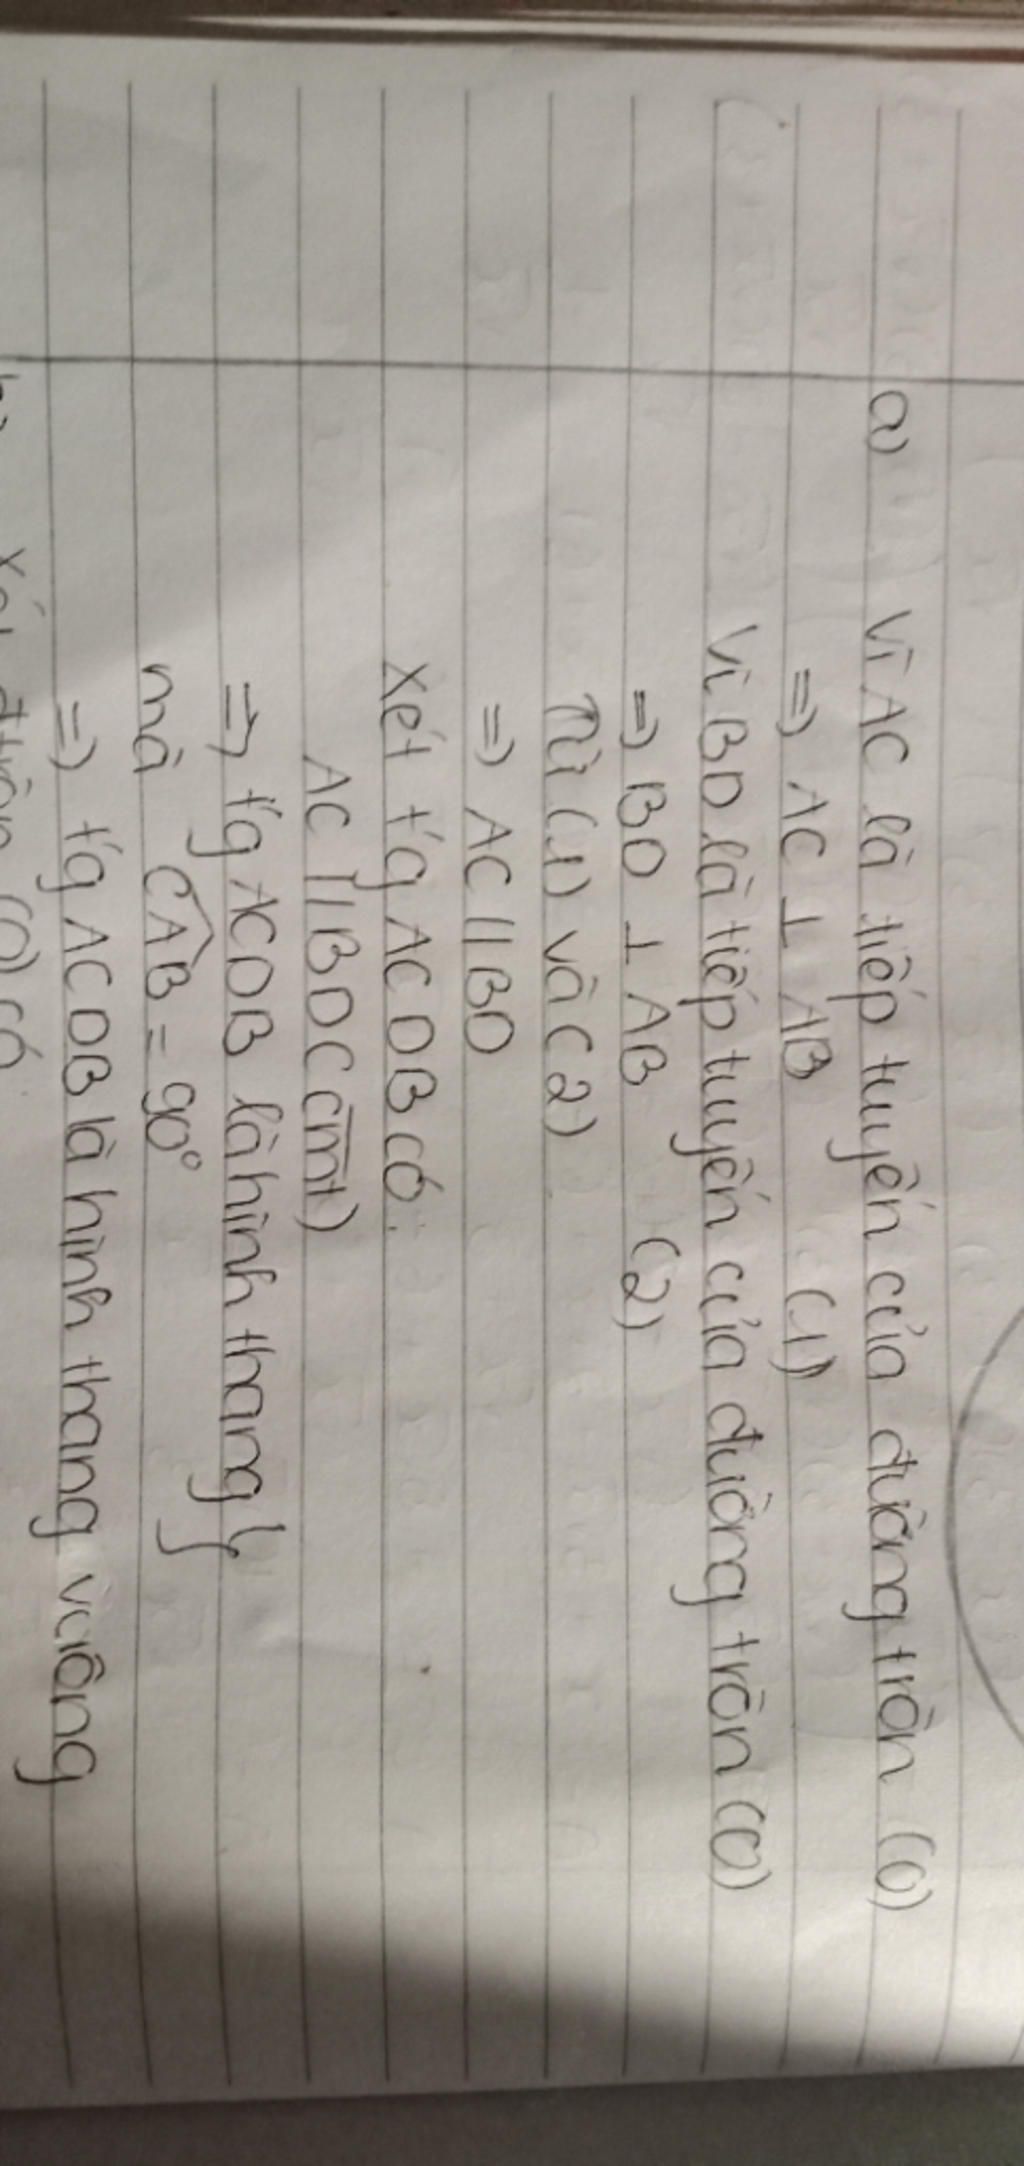 a) Vì AC là tiếp tuyến của đường tròn (O)
=> AC ⊥ AB (1)
Vì BD là tiếp tuyến của đường tròn (O)
=> BD ⊥ AB (2)
Từ (1) và (2)
=> AC // BD
Xét t/g ACDB có:
AC // BD (cmt)
=> t/g ACDB là hình thang }
mà CÂB = 90°
=> t/g ACDB là hình thang vuông
Xét đ tròn (O) có